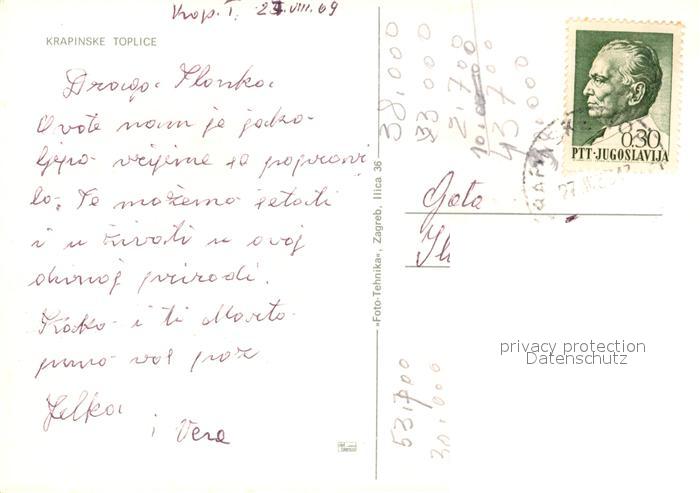 Krap. T. 27.VIII.69
KRAPINSKE TOPLICE
Draga Slavka
Ovote nam je jako
ljepo vrijeme se popravi
lo. Te možemo šetati
i uživati u ovoj
divnoj prirodi.
Kako i ti Marta
puno vas poz
Jelka
i Vera
»Foto-Tehnika«, Zagreb, Ilica 36
38.000
33 000
2.700
10.000
43700
.000
0,30
PTT-JUGOSLAVIJA
27
Gota
Ili
privacy protection
Datenschutz
53.700
30.000